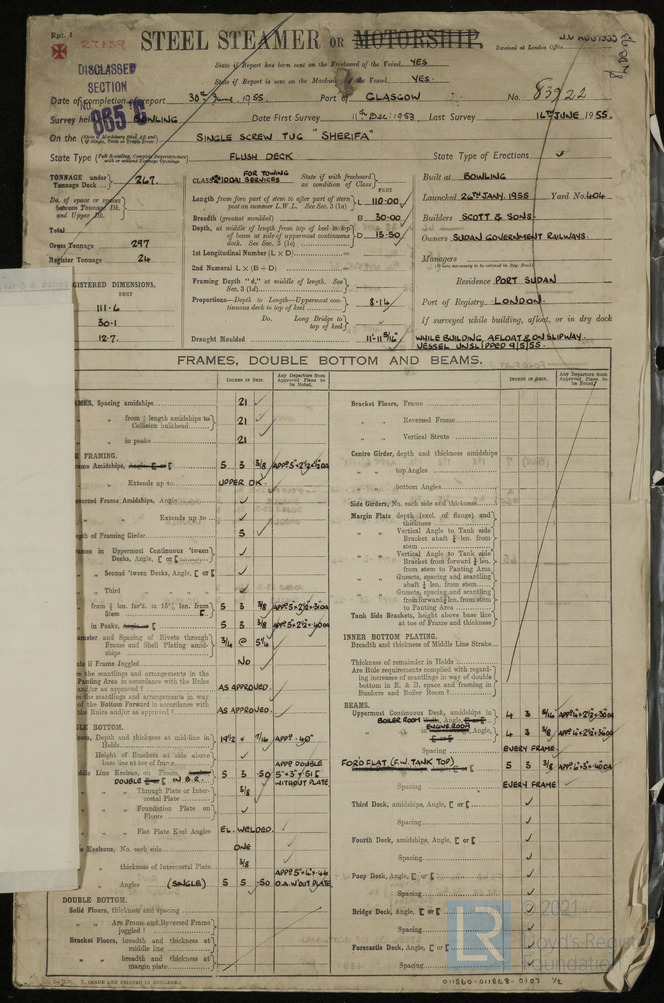 Rpt. 1
STEEL STEAMER OR MOTORSHIP.
Received at London Office
DISCLASSED
SECTION
State if Report has been sent on the Freeboard of the Vessel YES
State if Report is sent on the Machinery of the Vessel YES.
Date of completion of report 30th June 1955. Port of GLASGOW No. 83722
No. 865
Survey held BOWLING Date First Survey 11th Dec: 1953 Last Survey 14TH JUNE 1955.
On the SINGLE SCREW TUG "SHERIFA"
State Type FLUSH DECK State Type of Erections
TONNAGE under Tonnage Deck 267.
Do. of space or spaces between Tonnage Dk. and Upper Dk.
Total
Gross Tonnage 297
Register Tonnage 24
REGISTERED DIMENSIONS.
FEET
111.6
30.1
12.7.
CLASS 100A1 FOR TOWING SERVICES State if with freeboard as condition of Class
FEET
Length from fore part of stem to after part of stern post on summer L.W.L. See Sec. 3 (1a) L 110.00
Breadth (greatest moulded) B 30.00
Depth, at middle of length from top of keel to top of beam at side of uppermost continuous deck. See Sec. 3 (1c) D 13.50
1st Longitudinal Number (L × D)
2nd Numeral L × (B + D)
Framing Depth "d," at middle of length. See Sec. 3 (1d)
Proportions—Depth to Length—Uppermost continuous deck to top of keel 8.14
Do. Long Bridge to top of keel
Draught Moulded 11'-11 5/16"
Built at BOWLING
Launched 26TH JANY. 1955 Yard No. 404
Builders SCOTT & SONS.
Owners SUDAN GOVERNMENT RAILWAYS.
Managers
Residence PORT SUDAN
Port of Registry LONDON.
If surveyed while building, afloat, or in dry dock
WHILE BUILDING, AFLOAT & ON SLIPWAY.
VESSEL UNSLIPPED 9/5/55.
FRAMES, DOUBLE BOTTOM AND BEAMS.
INCHES IN SHIP.
Any Departure from Approved Plans to be Noted.
INCHES IN SHIP.
Any Departure from Approved Plans to be Noted.
Spacing amidships 21
from ⅗ length amidships to Collision bulkhead 21
in peaks 21
FRAMING.
Frame Amidships 5 3 3/8
Extends up to UPPER DK.
Reversed Frame Amidships, Angle
Extends up to
Depth of Framing Girder 5
Frames in Uppermost Continuous 'tween Decks, Angle, [ or [
Second 'tween Decks, Angle, [ or [
Third
Stem 5 3 3/8
in Peaks, 5 3 3/8
Diameter and Spacing of Rivets through Frame and Shell Plating amidships 3/4 @ 5 1/4
State if Frame Joggled No
Are the scantlings and arrangements in the Panting Area in accordance with the Rules and/or as approved? AS APPROVED.
Are the scantlings and arrangements in way of the Bottom Forward in accordance with the Rules and/or as approved? AS APPROVED.
SINGLE BOTTOM.
Floors, Depth and thickness at mid-line in Holds 19 1/2 × 7/16 APPD .40"
Height of Brackets at side above base line at toe of frame
Middle Line Keelson, on Floors, DOUBLE IN B.R. 5 3 .50
APPD DOUBLE
WITHOUT PLATE
Through Plate or Intercostal Plate 3/8
Foundation Plate on Floors
Flat Plate Keel Angles EL. WELDED.
Side Keelsons, No. each side ONE
thickness of Intercostal Plate 3/8
Angles (SINGLE) 5 5 .50
DOUBLE BOTTOM.
Solid Floors, thickness and spacing
Are Frame and Reversed Frame joggled?
Bracket Floors, breadth and thickness at middle line
breadth and thickness at margin plate
Bracket Floors, Frame
Reversed Frame
Vertical Struts
Centre Girder, depth and thickness amidships
top Angles
bottom Angles
Side Girders, No. each side and thickness
Margin Plate depth (excl. of flange) and thickness
Vertical Angle to Tank side Bracket abaft ¼ len. from stem
Vertical Angle to Tank side Bracket from forward ¼ len. from stem to Panting Area
Gussets, spacing and scantling abaft ¼ len. from stem
Gussets, spacing and scantling from forward ¼ len. from stem to Panting Area
Tank Side Brackets, height above base line at toe of Frame and thickness
INNER BOTTOM PLATING.
Breadth and thickness of Middle Line Strake
Thickness of remainder in Holds
Are Rule requirements complied with regarding increases of scantlings in way of double bottom in E. & B. space and framing in Bunkers and Boiler Room?
BEAMS.
Uppermost Continuous Deck, amidships in BOILER ROOM 4 3 5/16
in ENGINE ROOM 4 3 3/8
Spacing EVERY FRAME
FOR'D FLAT (F.W. TANK TOP) 5 3 3/8
Spacing EVERY FRAME
Third Deck, amidships, Angle, [ or [
Spacing
Fourth Deck, amidships, Angle, [ or [
Spacing
Poop Deck, Angle, [ or [
Spacing
Bridge Deck, Angle, [ or [
Spacing
Forecastle Deck, Angle, [ or [
Spacing
(MADE AND PRINTED IN ENGLAND.)
LR
© 2021
Lloyd's Register
Foundation
011860-011868-0107 1/2